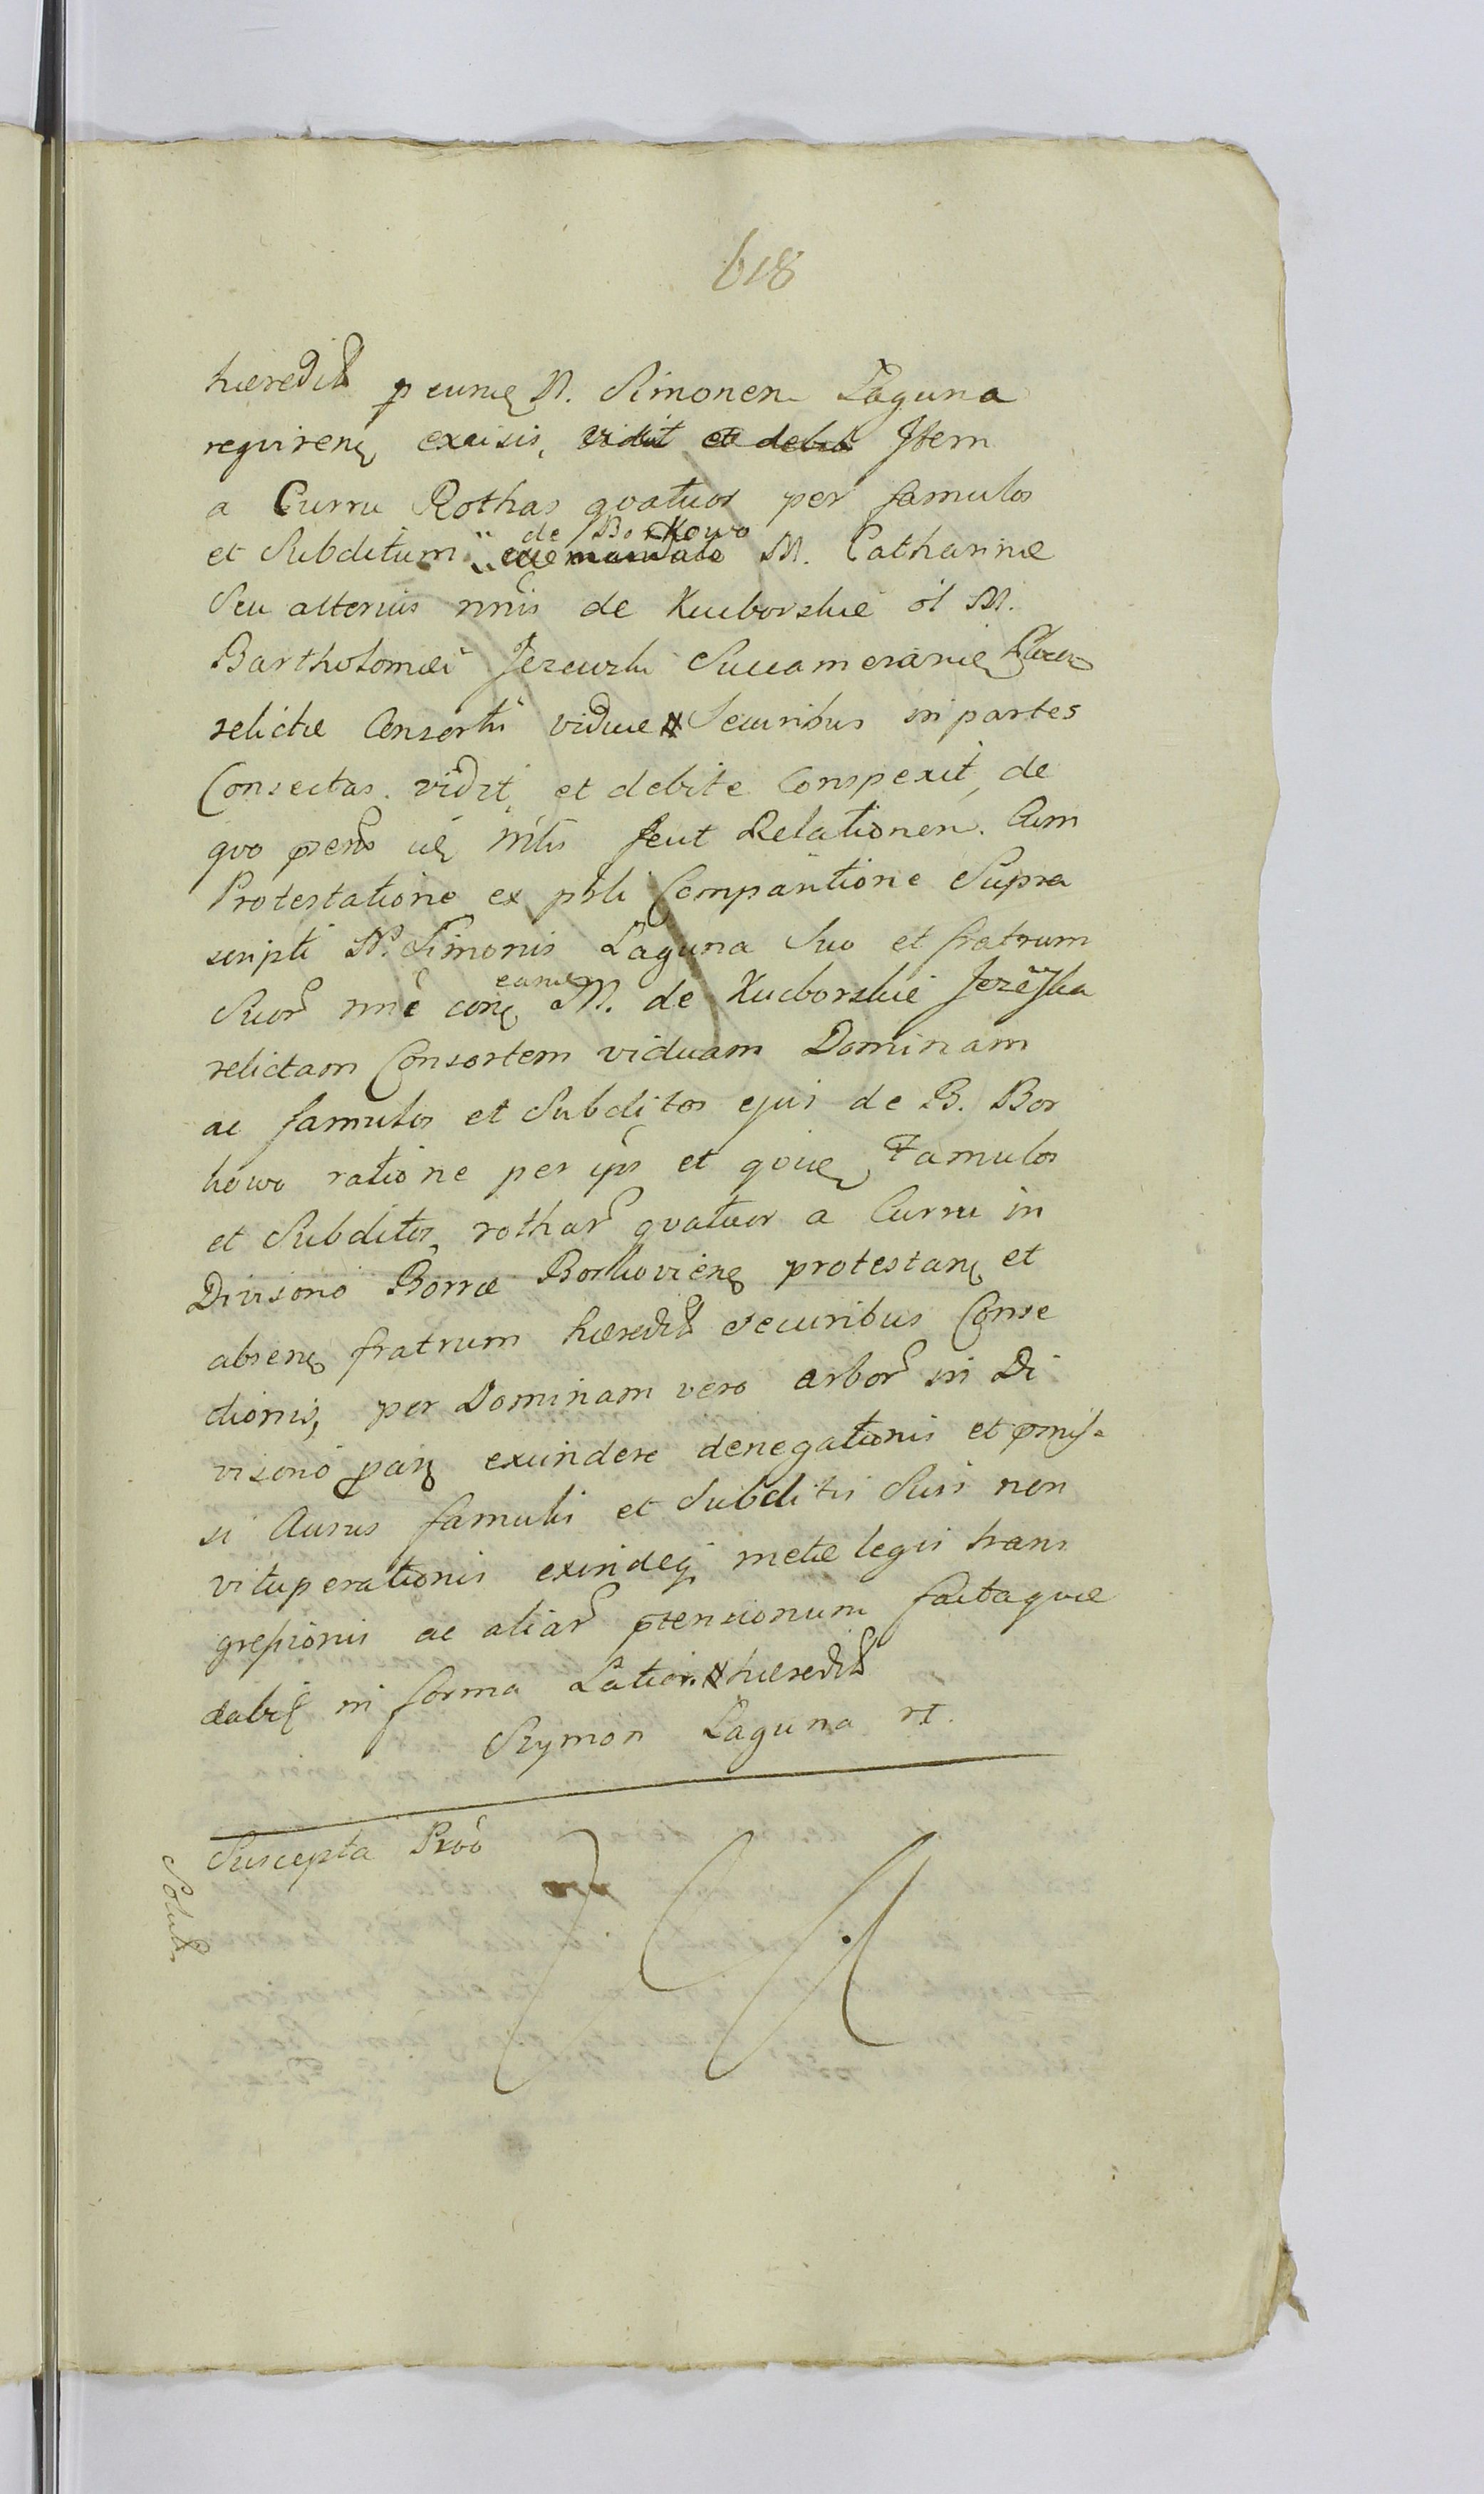 618
hæredit p eunde N. Simonem Laguna
requirent excisis, vidit et debite Item
a Curru Rothas qvatuor per famulos
de Borkowo
et Subditum ex mandato M. Catharinæ
Seu alterius nnis de Kuchorskie ol M.
Bartholomæi Jezewski Succamerarie
relictæ Consortis viduæ Securibus in partes
Consectas. vidit, et debite Conspexit, de
qvo præns uę Mtis fecit Relationem. Cum
Protestatione ex psli Comparitione Supra
scripti N. Simonis Laguna Suo et fratrum
eandem
Suor nne con M. de Kucborskie Jezewska
relictam Consortem viduam Dominam
ac famulos et Subditos ejus de B. Bor
kowo ratione per ips et qvie Famulos
et Subditos, rothar qvatuor a Curru in
Divisorio Borræ Borkovien protestan et
absen fratrum hæredit securibus Conse
ctionis, per Dominam vero arbor in Di
visorio pari excindere denegationis et prmis
si Ausus famulis et Subditis Suis non
vituperationis exindeq metæ legis trans
gressionis ac aliar ptensionum factaque
dabit in forma Latior. hæredit
Szymon Laguna
Suscepta Proo
Solut